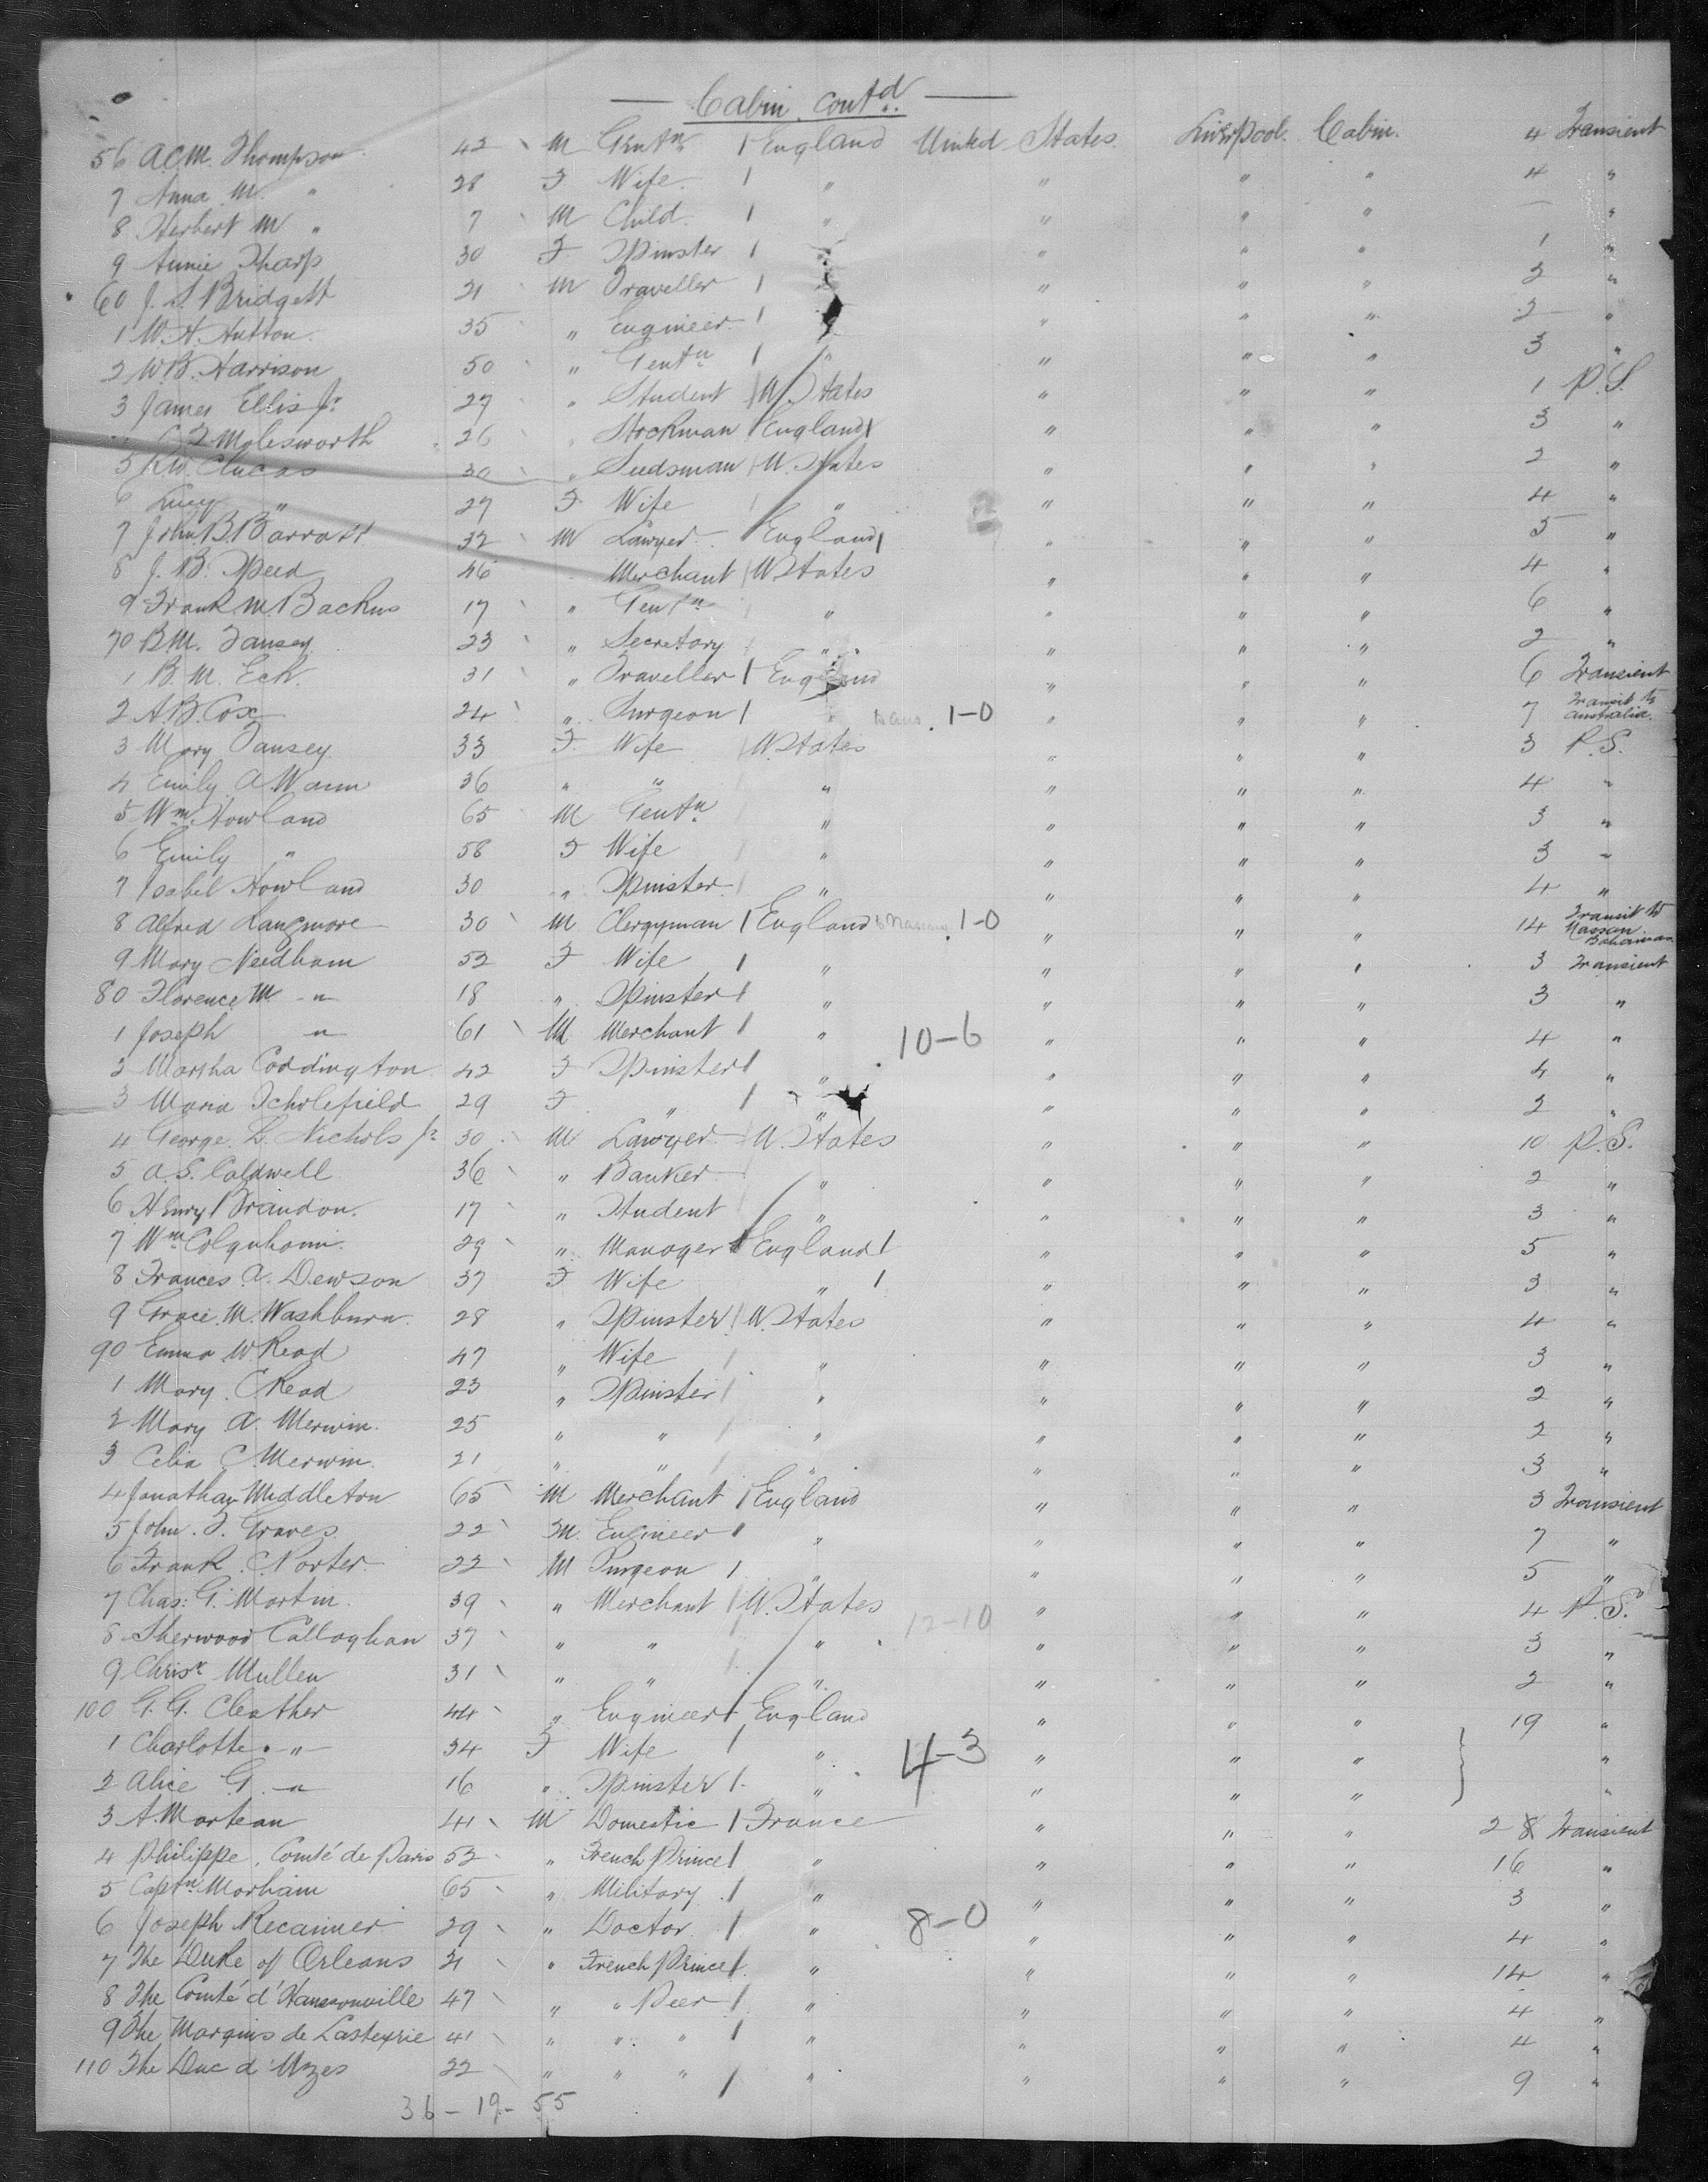 Cabin cont'd.
56 A.C.M. Thompson 42 M Gentn England United States Liverpool Cabin 4 Transient
7 Anna M. " 28 F Wife " " " " 4 "
8 Herbert M " 7 M Child " " " " — "
9 Annie Tharp 30 F Spinster " " " 1 "
60 J. S. Bridgett 21 M Traveller " " " 2 "
1 W. H. Hutton 35 " Engineer " " " 2 "
2 W B. Harrison 50 " Gentn " " " " 3 "
3 James Ellis Jr 27 " Student U. States " " " 1 P.S.
Molesworth 26 " Stockman England " " " 3 "
5 Clucas 30 " Seedsman U. States " " " 2 "
6 Lucy " 27 F Wife " " " " 4 "
7 John B. Barratt 32 M Lawyer England " " " 5 "
8 J. B. Speed 46 Merchant U. States " " " 4 "
9 Frank M. Backus 17 " Gentn " " " " 6 "
70 B M. Tansey 23 " Secretary " " " " 2 "
1 B. M. Eck 31 " Traveller England " " " 6 Transient
2 A. B. Cox 24 " Surgeon " 1-0 " " " 7 Transit to Australia.
3 Mary Tansey 33 F Wife U. States " " " 3 P.S.
4 Emily A. Wann 36 " " " " " " 4 "
5 Wm Howland 65 M Gentn " " " " 3 "
6 Emily " 58 F Wife " " " " 3 "
7 Isabel Howland 30 " Spinster " " " " 4 "
8 Alfred Langmore 30 M Clergyman England 1-0 " " " 14 Transit to Nassau Bahamas
9 Mary Needham 52 F Wife " " " " 3 Transient
80 Florence M " 18 " Spinster " " " " 3 "
1 Joseph " 61 M Merchant " 10-6 " " " 4 "
2 Martha Coddington 42 F Spinster " " " " 4 "
3 Maria Scholefield 29 F " " " " " 2 "
4 George L. Nichols Jr 30 M Lawyer U. States " " " 10 P.S.
5 A. S. Caldwell 36 " Banker " " " " 2 "
6 Henry Brandon 17 " Student " " " " 3 "
7 Wm Colquhoun 29 " Manager England " " " 5 "
8 Frances A. Dewson 37 F Wife " " " " 3 "
9 Grace M. Washburn 28 " Spinster U. States " " " 4 "
90 Emma W Read 47 " Wife " " " " 3 "
1 Mary C Read 23 " Spinster " " " " 2 "
2 Mary A. Merwin 25 " " " " " " 2 "
3 Celia C. Merwin 21 " " " " " " 3 "
4 Jonathan Middleton 65 M Merchant England " " " 3 Transient
5 John. T. Graves 22 M. Engineer " " " " 7 "
6 Frank C. Porter 22 M Surgeon " " " " 5 "
7 Chas: G. Martin 39 " Merchant U. States " " " 4 P.S.
8 Sherwood Callaghan 37 " " " 12-10 " " " 3 "
9 Chrisr Mullen 31 " " " " " " 2 "
100 G. G. Cleather 44 " Engineer England " " " 19 "
1 Charlotte " 34 F Wife " 4-3 " " " "
2 Alice G. " 16 " Spinster " " " " "
3 A. Marteau 41 M Domestic France " " " 2 Transient
4 Philippe, Comté de Paris 52 " French Prince " " " " 16 "
5 Captn Morhain 65 " Military " " " " 3 "
6 Joseph Recamier 29 " Doctor " 8-0 " " " 4 "
7 The Duke of Orleans 21 " French Prince " " " " 14 "
8 The Comté d'Haussonville 47 " " Peer " " " " 4 "
9 The Marquis de Lasteyrie 41 " " " " " " " 4 "
110 The Duc d'Uzes 22 " " " " " " " 9 "
36-19-55